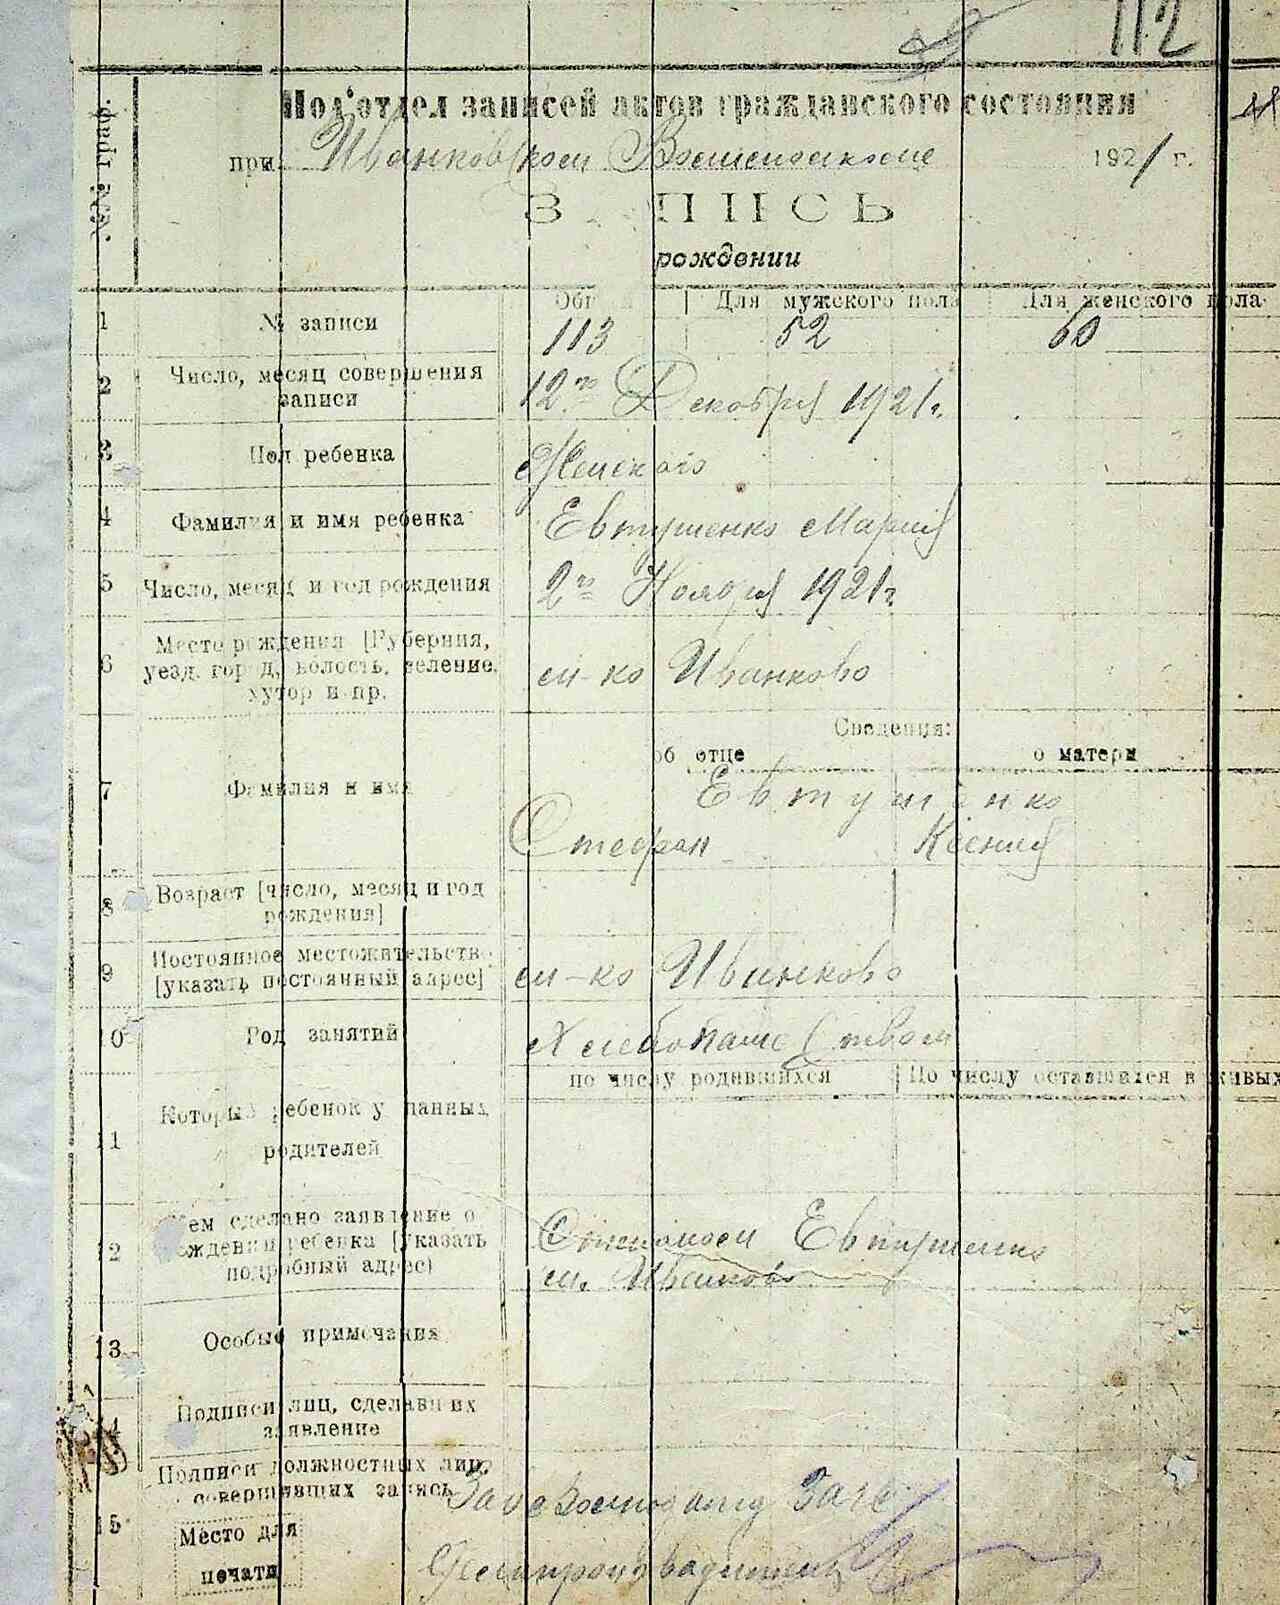 112
№№ граф.
Под'отдел записей актов гражданского состояния
при Иванковском 1921 г.
ЗАПИСЬ
рождении
Общий Для мужского пола Для женского пола
1 № записи 113 52 60
2 Число, месяц совершения 12го Декабря 1921г.
записи
3 Пол ребенка Женского
4 Фамилия и имя ребенка Евтушенко Мария
5 Число, месяц и год рождения 2го Ноября 1921г.
Место рождения [Губерния,
6 уезд, город, волость, селение, м-ко Иванково
хутор и пр.
Сведения:
об отце о матери
7 Фамилия и имя Евтушенко
Стефан Ксения
8 Возраст [число, месяц и год
рождения]
9 Постоянное местожительство м-ко Иванково
[указать постоянный адрес]
10 Род занятий Хлебопашеством
по числу родившихся По числу оставшихся в живых
11 Который ребенок у данных
родителей
Кем сделано заявление о
12 рождении ребенка [указать Евтушенко
подробный адрес) м. Иванково
13 Особые примечания
14 Подписи лиц, сделавших
заявление
Подписи должностных лиц,
совершивших запись Зав.
15 Место для
печати Делопроизводитель